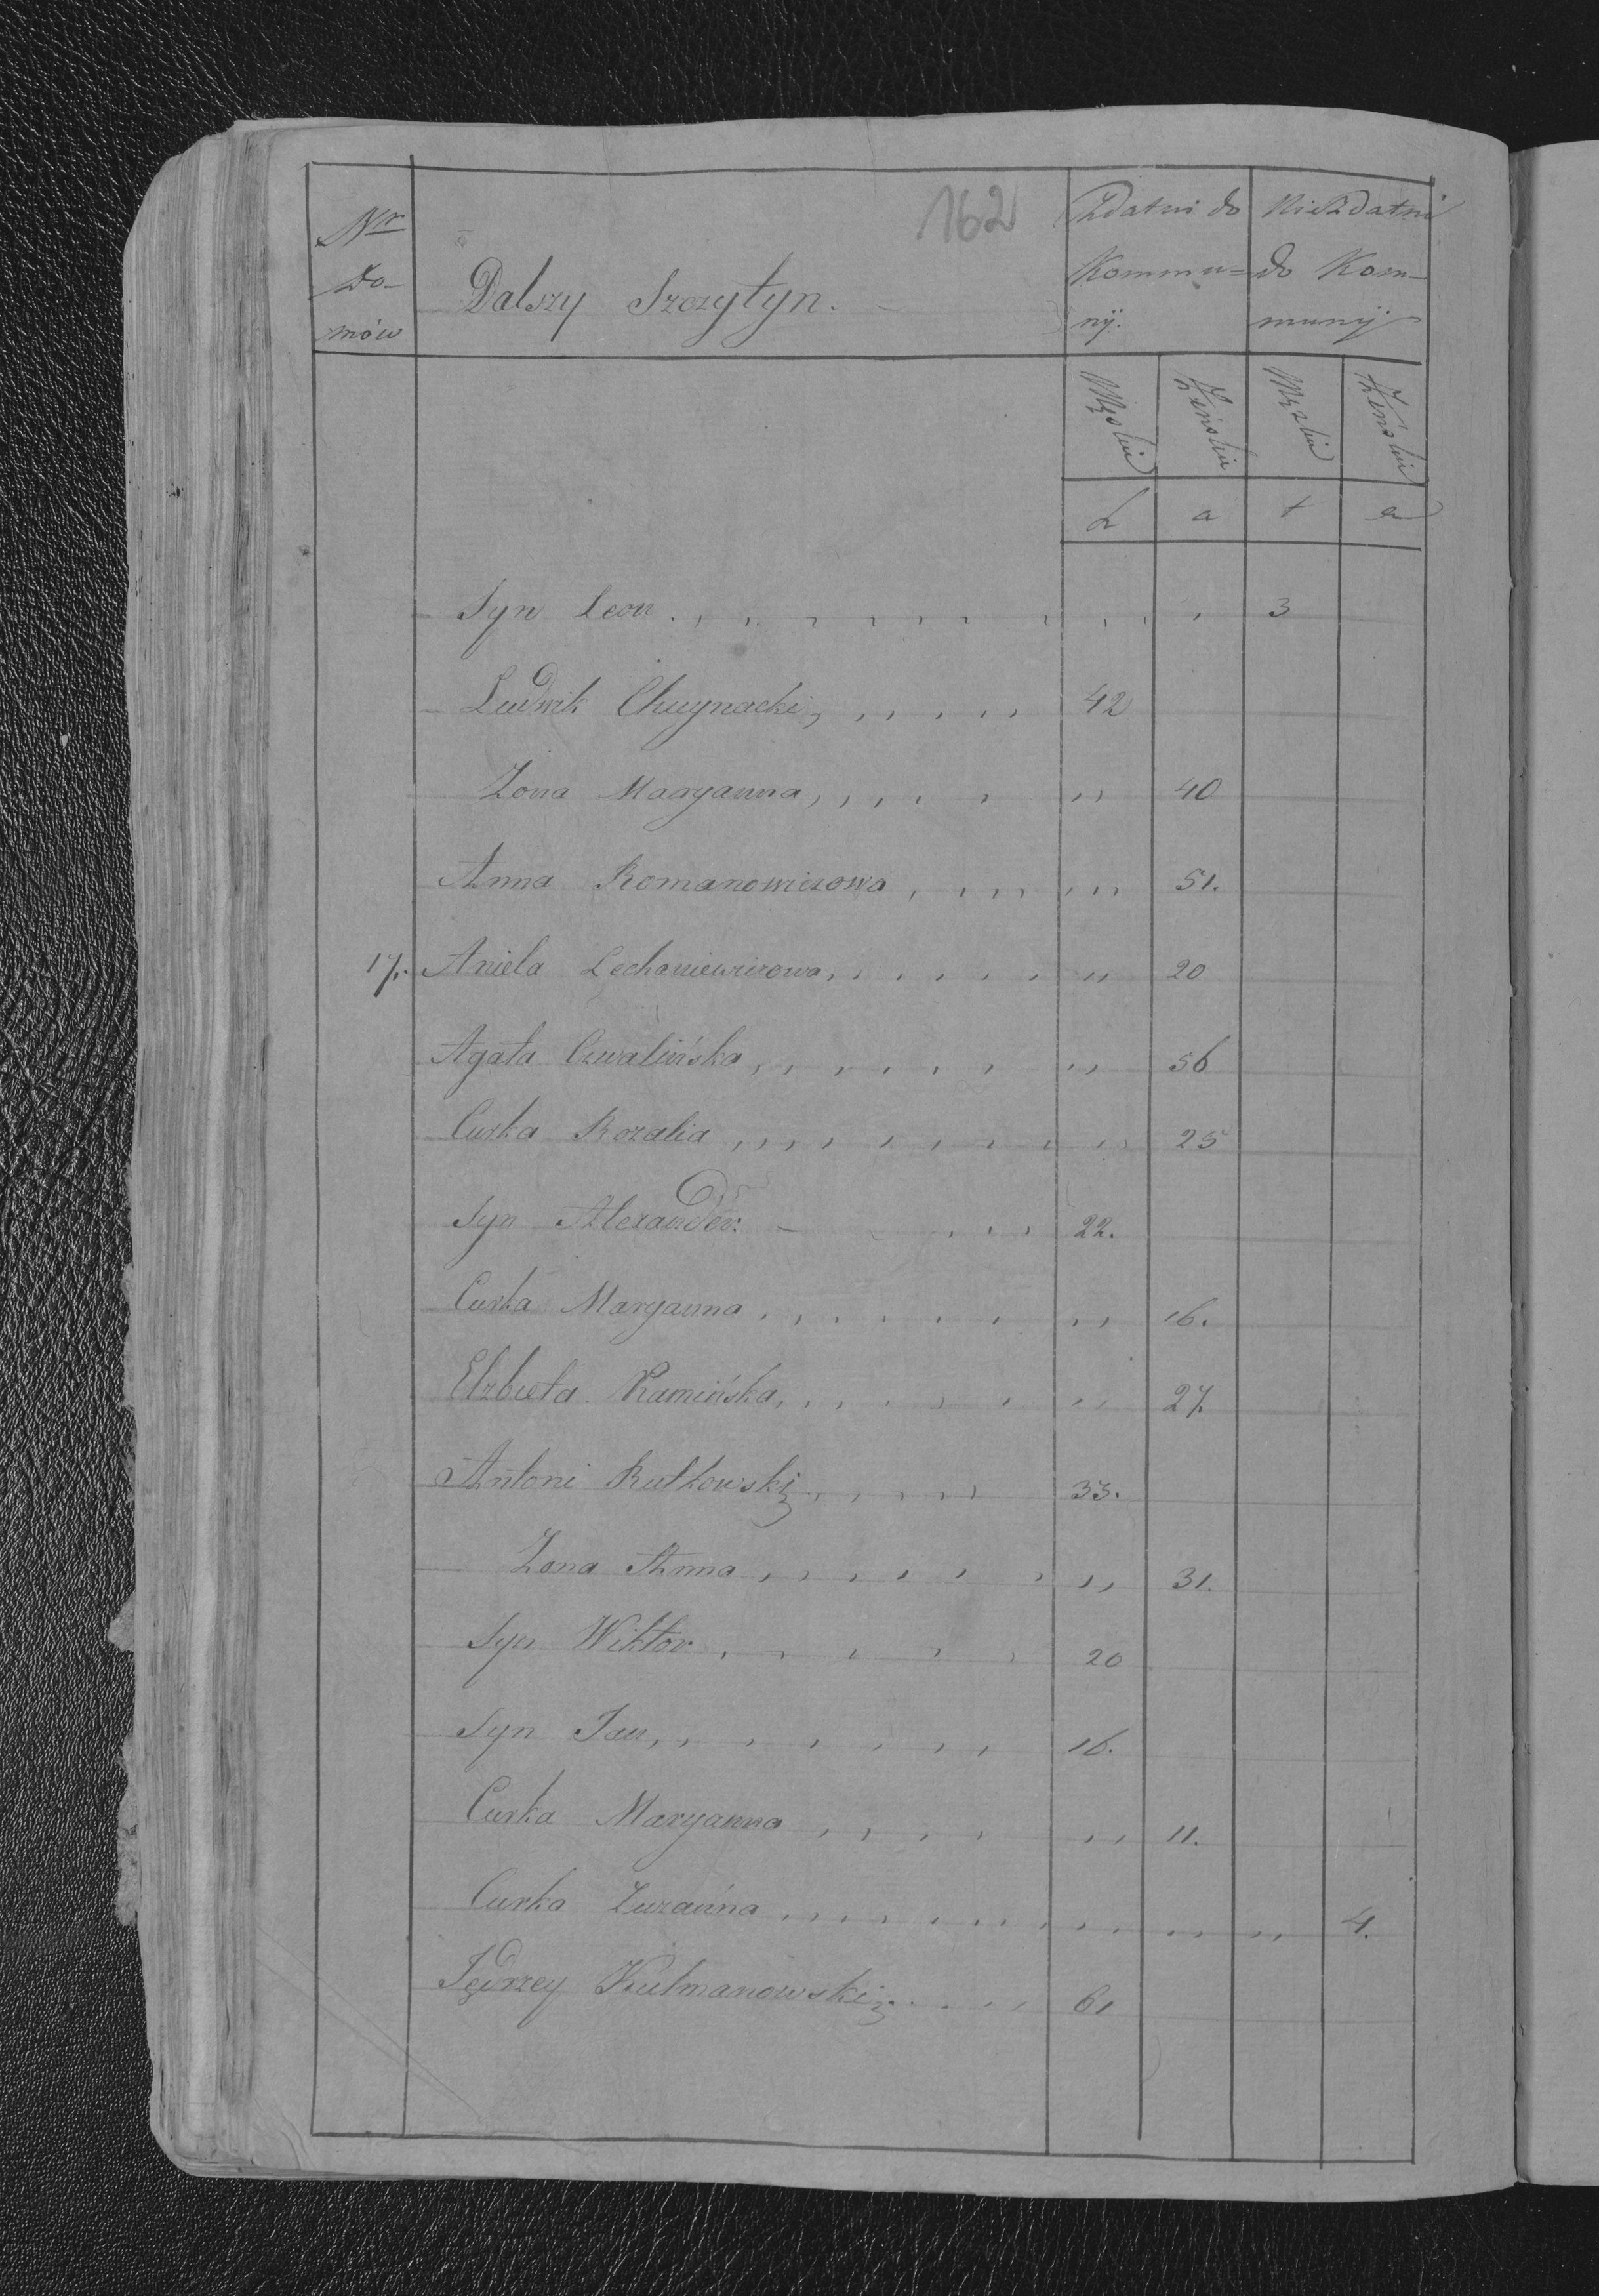 162
Nr Do- mów
Dalszy Szczytyn.
Zdatni do Kommu= nij.
Niezdatni do Kom- munij.
Męskie Żeńskie Męzkie Żeńskie
L a t a
Syn Leon 3
Ludwik Chuynacki 42
Zona Maryanna 40
Anna Romanowiczowa 51.
17. Aniela Lechoniewiczowa 20
Agata Czwalińska 56
Curka Rozalia 25
Syn Alexander 22.
Curka Maryanna 16.
Elzbieta Kamińska 27.
Antoni Rutkowski 33.
Zona Anna 31.
Syn Wiktor 20
Syn Jan 16.
Curka Maryanna 11.
Curka Zuzanna 4.
Jędrzey Kulmanowski 61